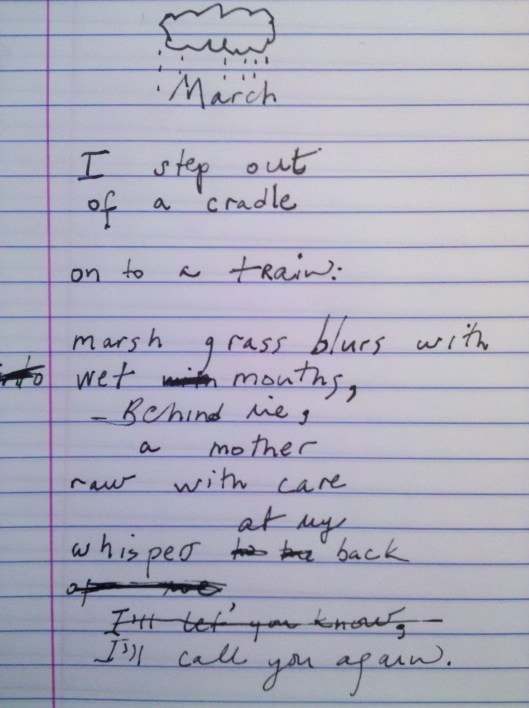 March
I step out
of a cradle
on to a train:
marsh grass blurs with
wet mouths,
– Behind me,
a mother
raw with care
at my
whispers back
I'll let you know,
I'll call you again.